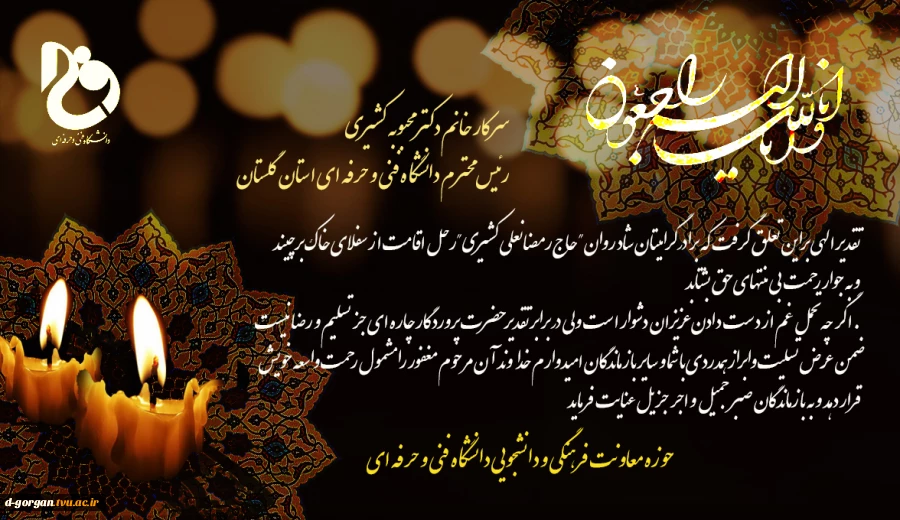 انا لله و انا الیه راجعون
دانشگاه فنی و حرفه ای
سرکار خانم دکتر محبوبه کشیری
رئیس محترم دانشگاه فنی و حرفه ای استان گلستان
تقدیر الهی بر این تعلق گرفت که برادر گرامیتان شادروان "حاج رمضانعلی کشیری" رحل اقامت از سفلای خاک برچیند
و به جوار رحمت بی منتهای حق بشتابد
. اگر چه تحمل غم از دست دادن عزیزان دشوار است ولی در برابر تقدیر حضرت پروردگار چاره ای جز تسلیم و رضا نیست
ضمن عرض تسلیت و ابراز همدردی با شما و سایر بازماندگان امیدوارم خداوند آن مرحوم مغفور را مشمول رحمت واسعه خویش
قرار دهد و به بازماندگان صبر جمیل و اجر جزیل عنایت فرماید
حوزه معاونت فرهنگی و دانشجویی دانشگاه فنی و حرفه ای
d-gorgan.tvu.ac.ir